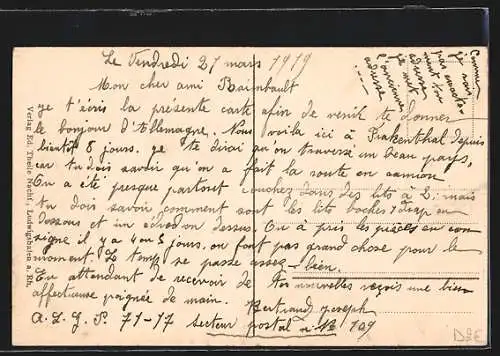 Le Vendredi 21 mars 1919
Mon cher ami Raimbault
je t'écris la présente carte afin de venir te donner
le bonjour d'Allemagne. Nous voila ici à Frakenthal depuis
bientôt 8 jours. je te dirai qu'on traverse un beau pays,
car tu dois savoir qu'on a fait la route en camion
On a été presque partout couchez dans des lits à 2, mais
tu dois savoir comment sont les lits boches 1 drap en
dessous et un édredon dessus. On a pris les pièces en con
signe il y a 4 ou 5 jours, on fait pas grand chose pour le
moment. Le temps se passe assez bien.
En attendant de recevoir de tes nouvelles reçois une bien
affectueuse poignée de main.
Bertrand Joseph
A.L.G.P. 71-17 secteur postal n: 109
Comme
je sais
pas encore
ton
adresse
je met
l'ancienne
adresse
Verlag Ed. Theile Nachf., Ludwigshafen a. Rh.